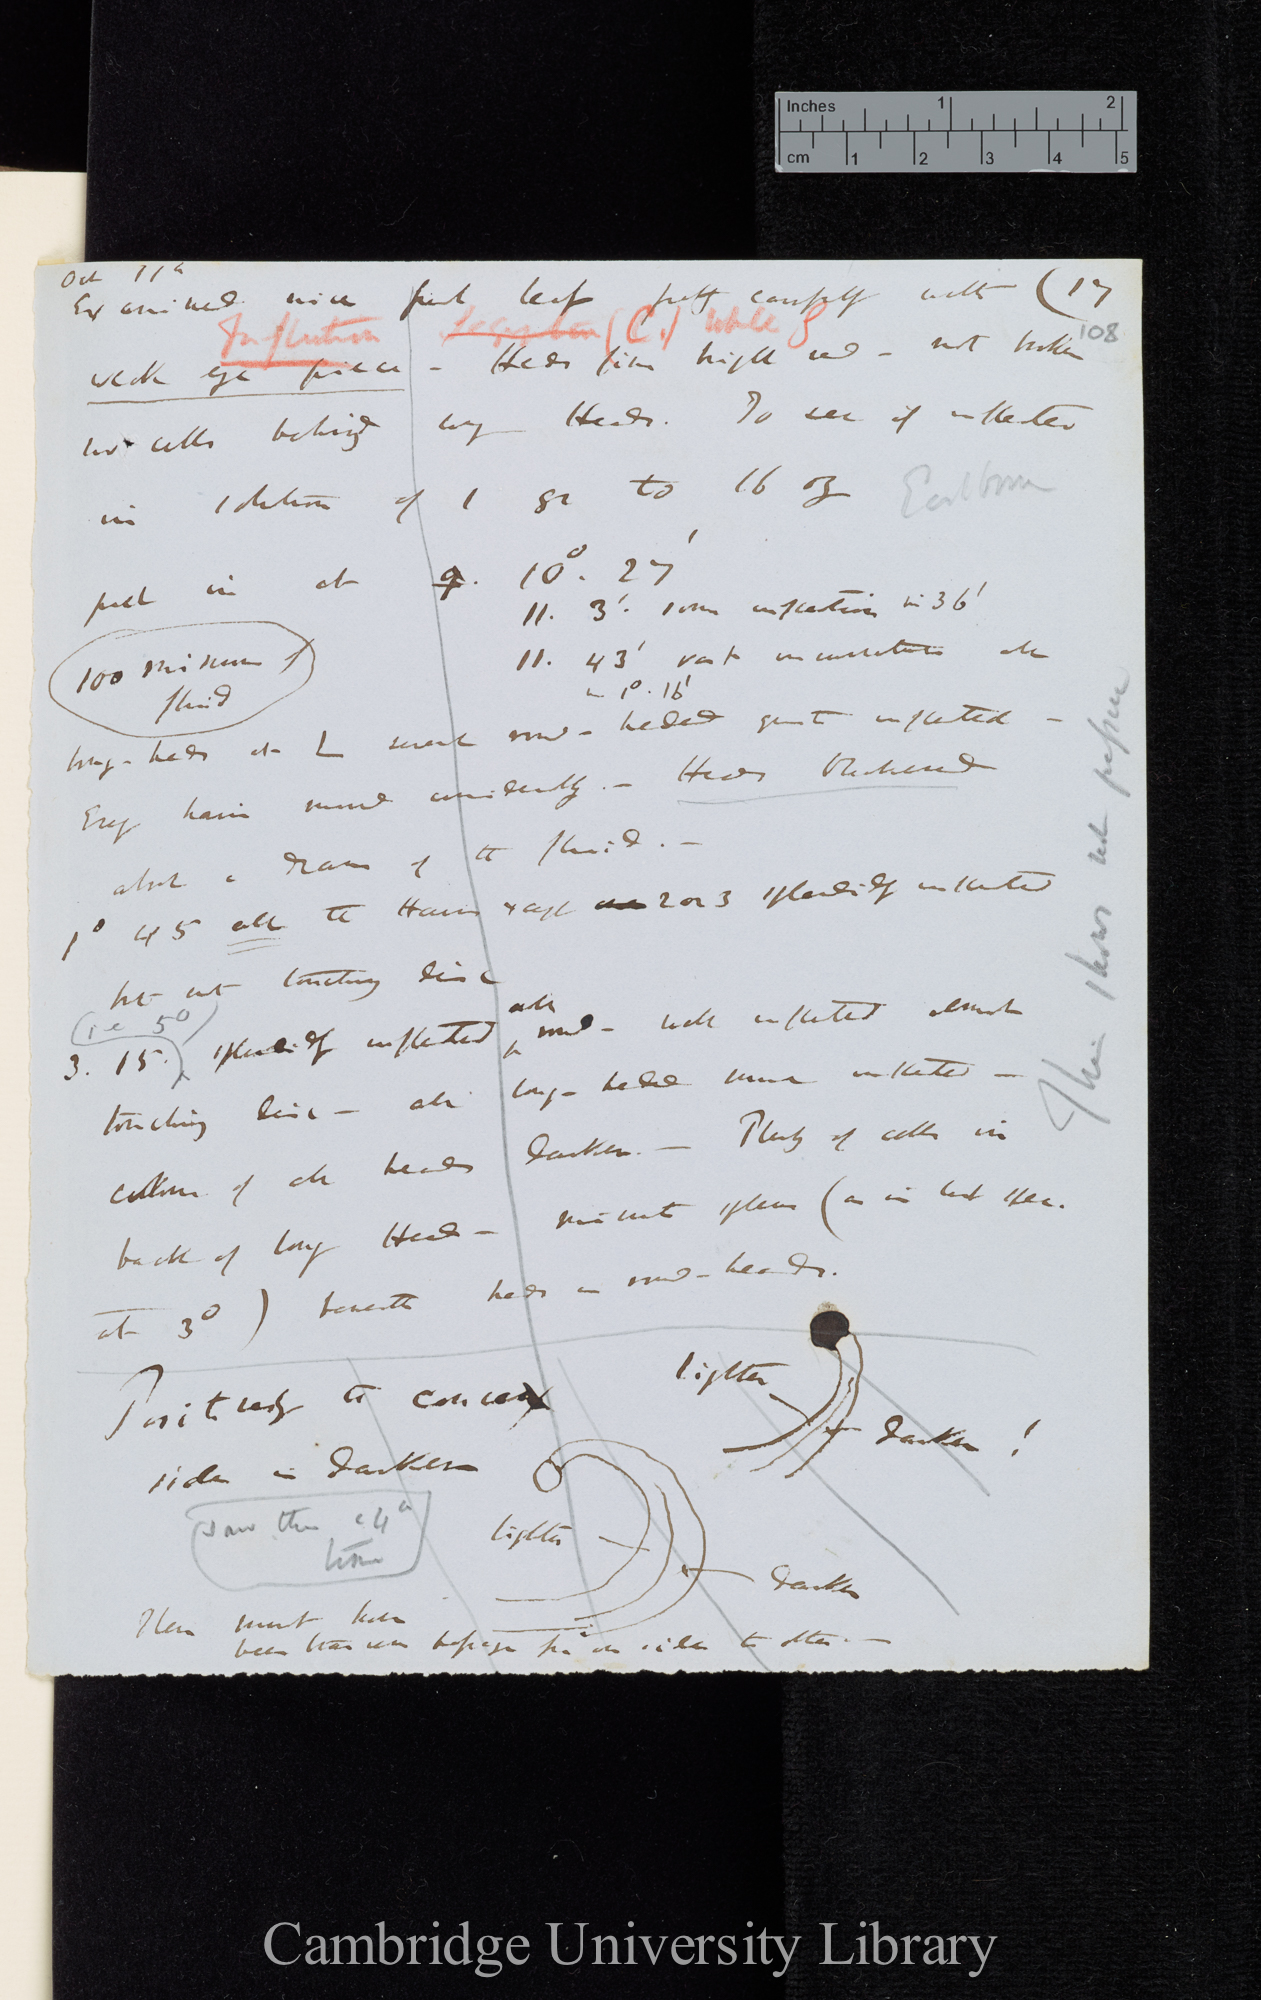 Inches 1 2
cm 1 2 3 4 5
Oct 11th
Examined nice fresh leaf carefully with (17
108
Inflection (C.) while
weak eye piece - Heads fine bright red - not broken
cells behind long Heads. To see if inflected
in solution of 1 gr to 16 oz
Eastbourne
put in at 9. 10°. 27'
11. 3'. some inflection in 36'
100 minims of
fluid
11. 43' vast in 1°. 16'
long-heads at several round-headed quite inflected -
Every hair moved evidently. - Heads blackened
about a dram of the fluid. -
1° 45 all the Hairs except 2 or 3 splendidly inflected
but not touching disc
(i.e 5°)
3. 15. splendidly inflected all round - well inflected almost
touching disc - all long-headed much inflected -
colour of all heads darker. - Plenty of cells in
back of long Head - minute spheres (as in last spec.
at 3°) beneath heads in round-heads.
This shows not pepsin
Positively the convex
side is darker
lighter
darker!
saw this a 4th
time
lighter
darker
There must have
been from one side to other. -
Cambridge University Library